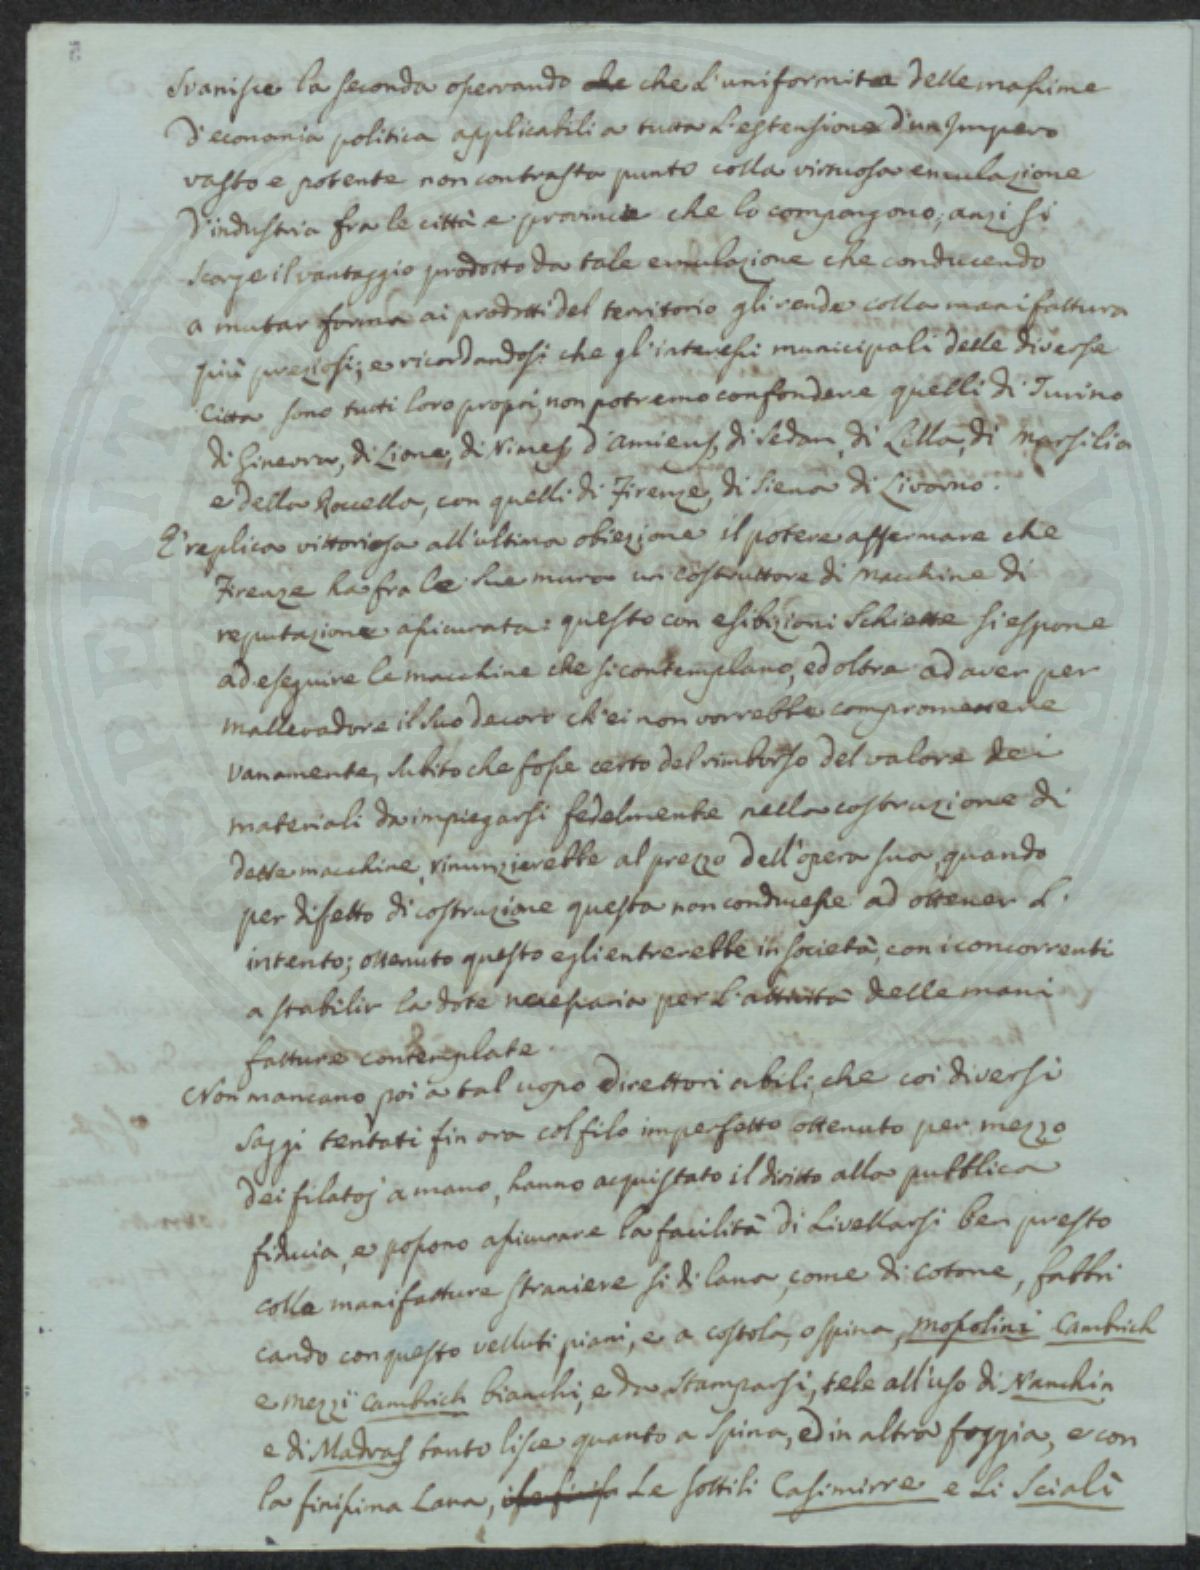 Svanisce la seconda osservando che che l'uniformità delle massime
d'economia politica applicabili a tutta l'estensione d'un Impero
vasto e potente non contrasta punto colla virtuosa emulazione
d'industria fra le città e provincie che lo compongono; anzi si
scorge il vantaggio prodotto da tale emulazione che conducendo
a mutar forma ai prodotti del territorio gli rende colla manifattura
più preziosi; e ricordandosi che gl'interessi municipali delle diverse
Città sono tutti loro proprj, non potremo confondere quelli di Turino
di Ginevra, di Lione, di Nimes, d'Amiens, di Sedan, di Lilla, di Marsilia
e della Roccella, con quelli di Firenze, di Siena di Livorno.
E' replica vittoriosa all'ultima obiezione il potere affermare che
Firenze ha fra le sue mura un costruttore di macchine di
reputazione assicurata: questo con esibizioni schiette si espone
ad eseguire le macchine che si contemplano, ed oltre ad aver per
mallevadore il suo decoro ch'ei non vorrebbe compromettere
vanamente, subito che fosse certo del rimborso del valore dei
materiali da impiegarsi fedelmente nella costruzione di
dette macchine, rinunzierebbe al prezzo dell'opera sua, quando
per difetto di costruzione questa non conducesse ad ottener l'
intento; ottenuto questo egli entrerebbe in società, con i concorrenti
a stabilir la dote necessaria per l'attività delle mani
fatture contemplate.
Non mancano poi a tal uopo direttori abili, che coi diversi
saggi tentati fin ora col filo imperfetto ottenuto per mezzo
dei filatoj a mano, hanno acquistato il diritto alla pubblica
fiducia, e possono assicurare la facilità di livellarsi ben presto
colle manifatture straniere sì di lana, come di cotone, fabbri
cando con questo velluti piani, e a costola, o spina, mosolini Cambrich
e mezzi Cambrich bianchi, e da stamparsi, tele all'uso di Nanchin
e di Madras tanto lisce quanto a spina, ed in altra foggia, e con
la finissima Lana, le sottili Casimirre e li Scialì